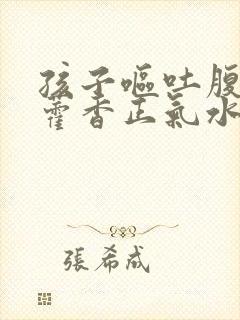 孩子嘔吐腹
藿香正氣水
張希成